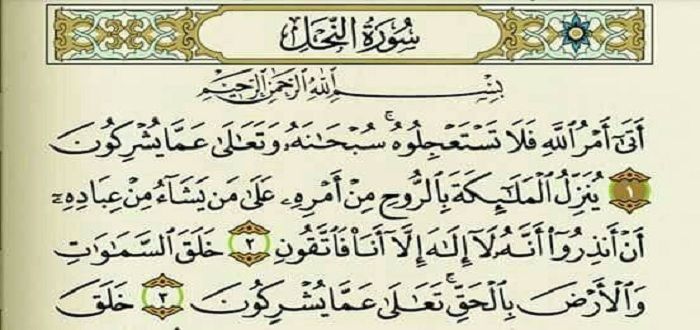 سُورَةُ النَّحْلِ
بِسْمِ ٱللَّهِ ٱلرَّحْمَٰنِ ٱلرَّحِيمِ
أَتَىٰٓ أَمْرُ ٱللَّهِ فَلَا تَسْتَعْجِلُوهُ ۚ سُبْحَٰنَهُۥ وَتَعَٰلَىٰ عَمَّا يُشْرِكُونَ
١ يُنَزِّلُ ٱلْمَلَٰٓئِكَةَ بِٱلرُّوحِ مِنْ أَمْرِهِۦ عَلَىٰ مَن يَشَآءُ مِنْ عِبَادِهِۦٓ
أَنْ أَنذِرُوٓا۟ أَنَّهُۥ لَآ إِلَٰهَ إِلَّآ أَنَا۠ فَٱتَّقُونِ ٢ خَلَقَ ٱلسَّمَٰوَٰتِ
وَٱلْأَرْضَ بِٱلْحَقِّ ۚ تَعَٰلَىٰ عَمَّا يُشْرِكُونَ ٣ خَلَقَ